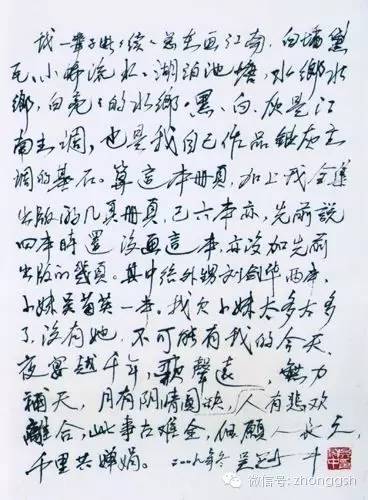 我一辈子断断续续总在画江南，白墙黑
瓦、小桥流水、湖泊池塘，水鄉水
鄉，白亮亮的水鄉。黑、白、灰是江
南主调，也是我自己作品银灰主
调的基石。算這本册頁，加上我全道
出版的几真册頁，已六本亦，先前說
四本時還沒画這本，亦沒加先前
出版的幾頁。其中给外甥刘剑华两本，
小妹吴菊英一本。我欠小妹太多太多
了，沒有她，不可能有我的今天。
夜宴越千年，歌聲遠，無力
補天，月有阴晴圆缺，人有悲欢
離合，此事古难全，但願人長久，
千里共嬋娟。二〇〇八年冬 吴冠中
微信号: zhonggsh